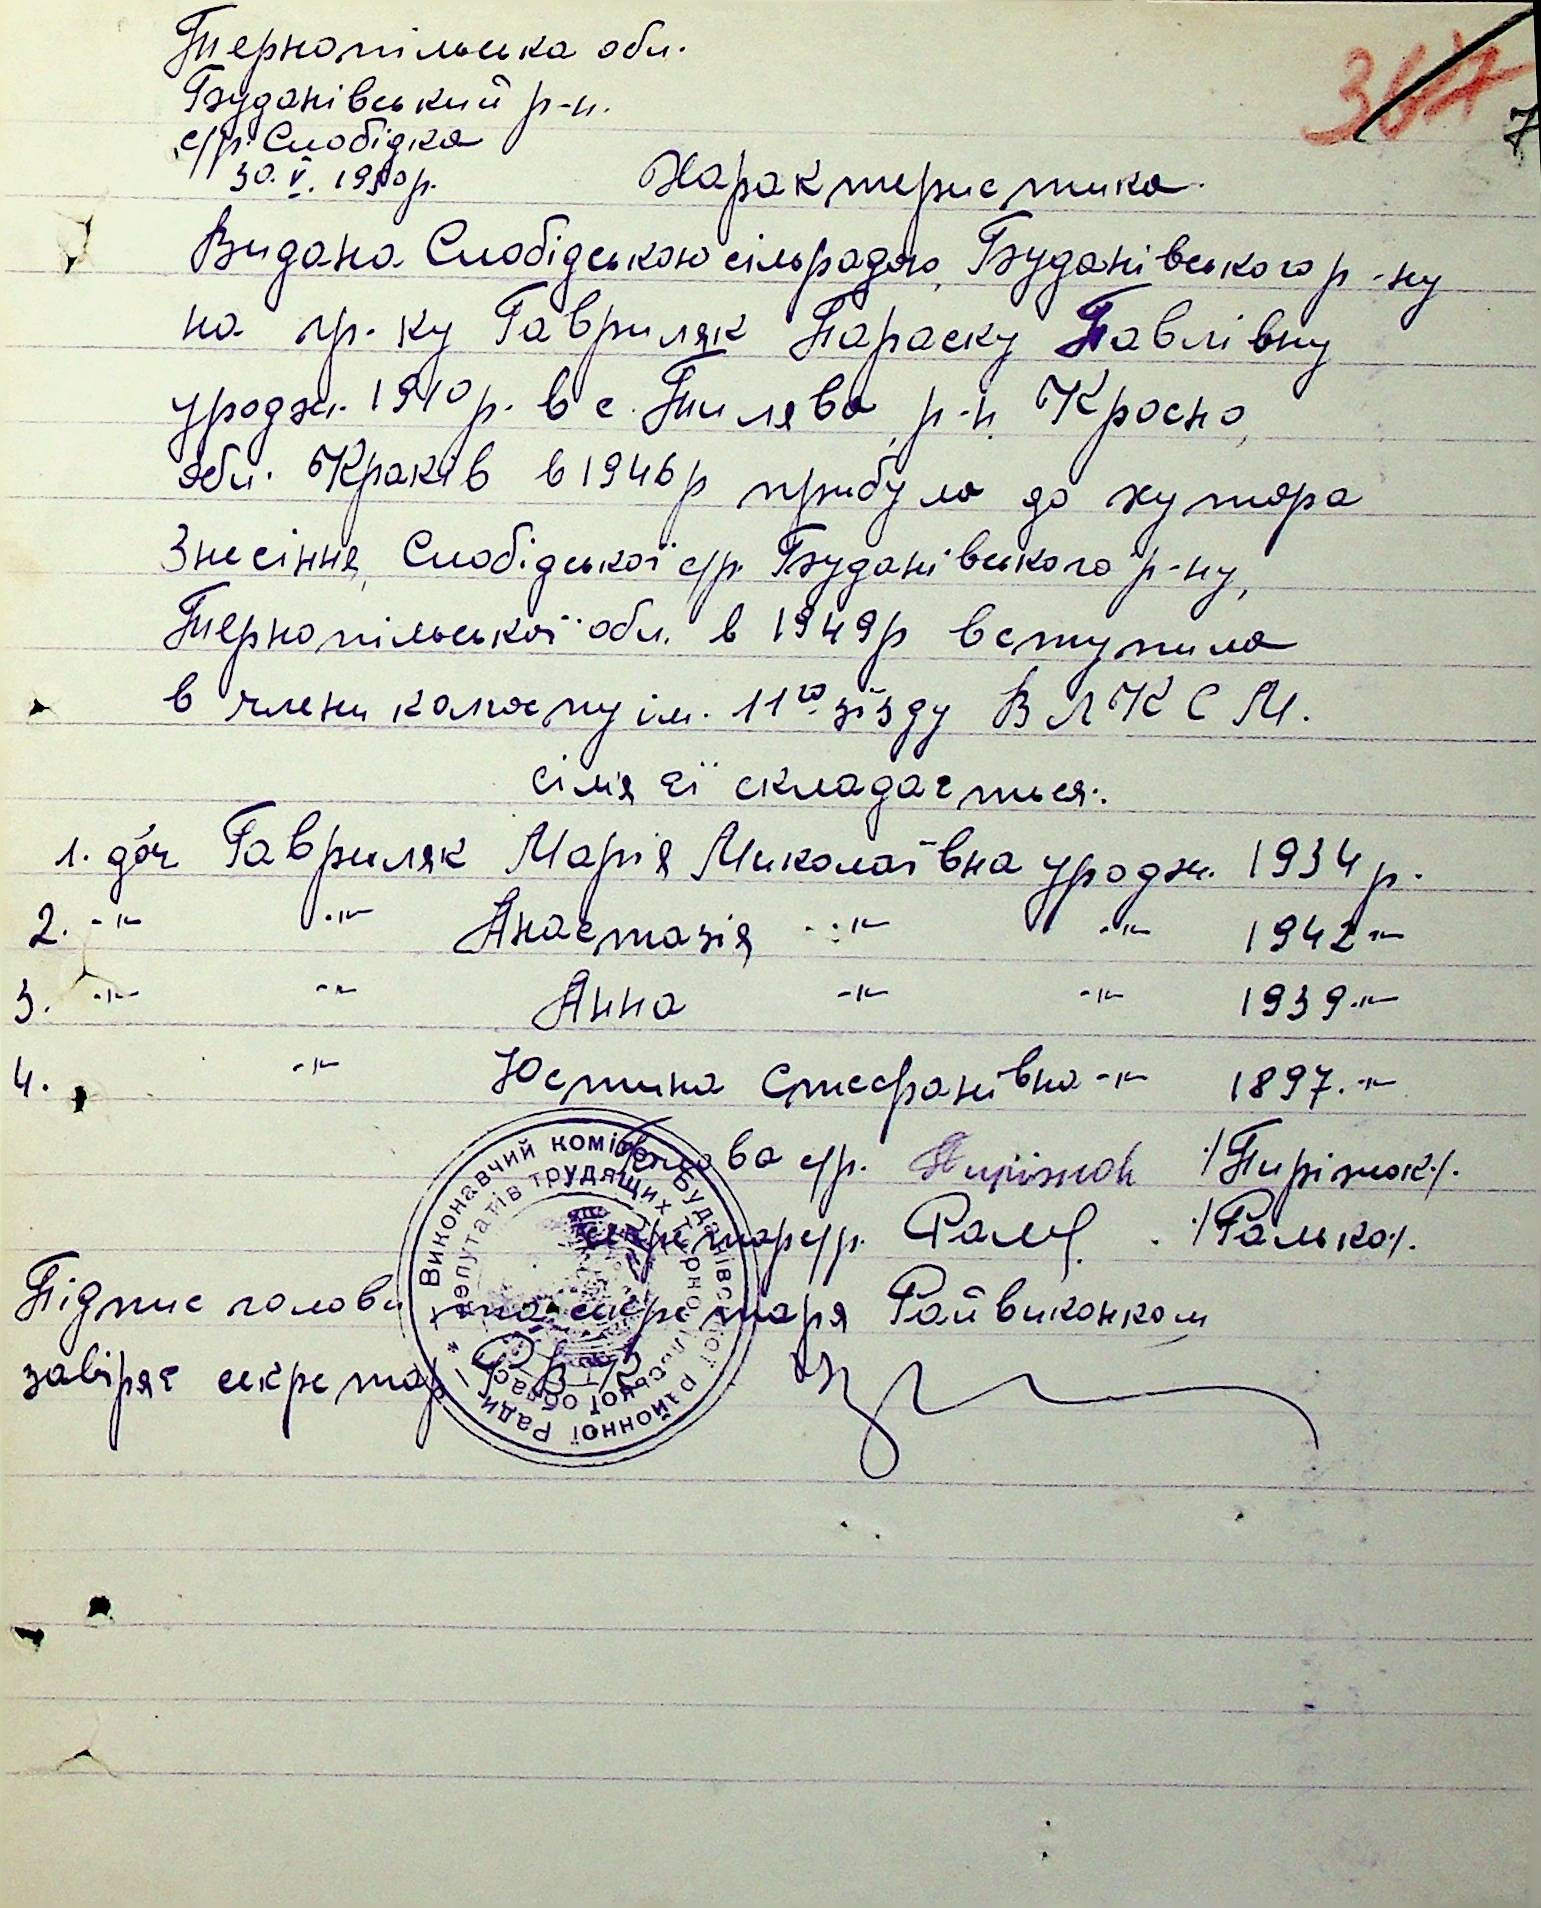 Тернопільська обл.
Буданівський р-н.
с/р. Слобідка
30. V. 1950 р.
367
7
Характеристика.
Видана Слобідською сільрадою, Буданівського р-ну
на гр-ку Гавриляк Параску Павлівну
уродж. 1910 р. в с. Тилява, р-н Кросно,
обл. Краків в 1946 р прибула до хутора
Знесіння, Слобідської с/р. Буданівського р-ну,
Тернопільської обл. в 1949 р вступила
в члени колгоспу ім. 11го зїзду ВЛКСМ.
сімя її складається:
1. доч Гавриляк Марія Миколаївна уродж. 1934 р.
2. -"- -"- Анастазія -"- -"- 1942 -"-
3. -"- -"- Анна -"- -"- 1939 -"-
4. -"- Юстина Стефанівна -"- 1897. -"-
Голова с/р. Пиріжок /Пиріжок/.
секретар с/р. /Ралько/.
Підпис голови та секретаря Райвиконком
завіряє секретар РВК
Виконавчий комітет Буданівської районної Ради
депутатів трудящих Тернопільської області